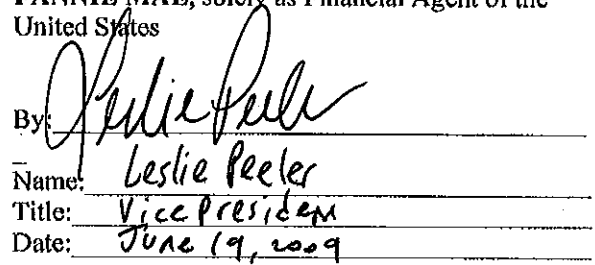 FANNIE MAE, solely as Financial Agent of the
United States
By: Leslie Peeler
Name: Leslie Peeler
Title: Vice President
Date: June 19, 2009